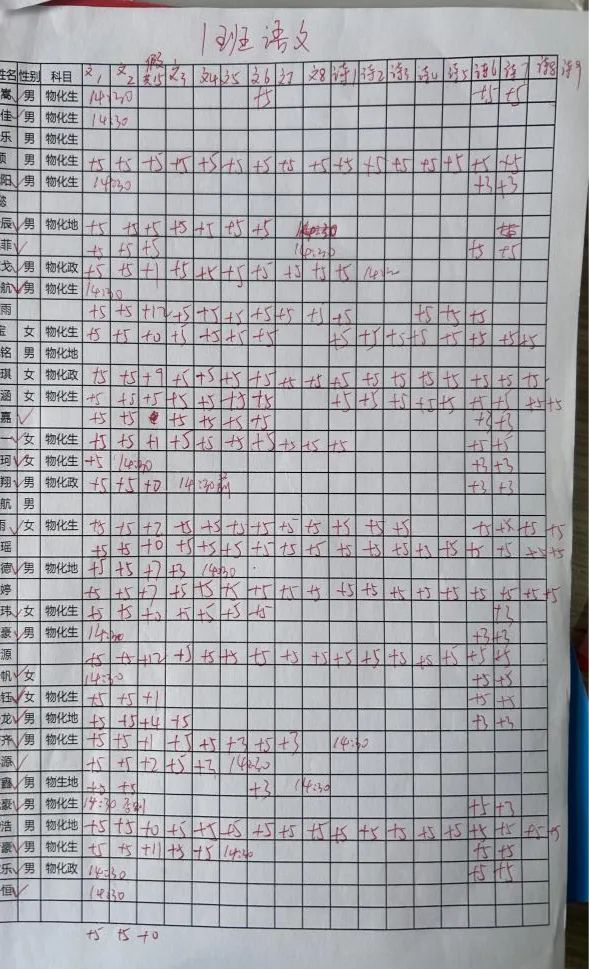 1班语文
姓名 性别 科目 文1 文2 文3 文4 文5 文6 文7 文8 诗1 诗2 诗3 诗4 诗5 诗6 诗7 诗8 诗9
嵩 男 物化生 14:30 +5 +5 +5
佳 男 物化生 14:30
乐 男 物化生
顾 男 物化生 +5 +5 +5 +5 +5 +5 +5 +5 +5 +5 +5 +5 +5 +5 +5 +5
阳 男 物化生 14:30 +3 +3
辰 男 物化地 +5 +5 +5 +5 +5 +5 +5
菲 +5 +5 +5 14:30 +5 +5
戈 男 物化政 +5 +5 +1 +5 +5 +5 +5 +5 +5 +5
航 男 物化生 14:30
雨 +5 +5 +12 +5 +5 +5 +5 +5 +5 +5 +5 +5 +5
女 物化生 +5 +5 +0 +5 +5 +5 +5 +5 +5 +5 +5 +5 +5 +5 +5
铭 男 物化地
琪 女 物化政 +5 +5 +9 +5 +5 +5 +5 +5 +5 +5 +5 +5 +5 +5 +5 +5 +5
涵 女 物化生 +5 +5 +5 +5 +5 +5 +5 +5 +5 +5 +5 +5 +5 +5 +5 +5
嘉 +5 +5 +5 +5 +5 +5 +3 +3
一 女 物化生 +5 +5 +1 +5 +5 +5 +5 +5 +5 +5 +5 +5
珂 女 物化生 +5 14:30 +3 +3
翔 男 物化政 +5 +5 +0 14:30前 +3 +3
航 男
雨 女 物化生 +5 +5 +2 +5 +5 +5 +5 +5 +5 +5 +5 +5 +5 +5 +5 +5
瑶 +5 +5 +0 +5 +5 +5 +5 +5 +5 +5 +5 +5 +5 +5 +5 +5 +5 +5
德 男 物化地 +5 +5 +7 +3 14:30
婷 +5 +5 +7 +5 +5 +5 +5 +5 +5 +5 +5 +5 +5 +5 +5 +5 +5 +5
玮 女 物化生 +5 +5 +0 +5 +5 +5 +5 +3
豪 男 物化生 14:30 +3 +3
源 +5 +5 +12 +5 +5 +5 +5 +5 +5 +5 +5 +5 +5 +5 +5 +5
帆 女 14:30 +5 +5
钰 女 物化生 +5 +5 +1 +5 +5
龙 男 物化地 +5 +5 +4 +5 +3 +3
齐 男 物化生 +5 +5 +1 +5 +5 +3 +5 +3 14:30
源 +5 +5 +2 +5 +3 14:30
鑫 男 物生地 +5 +5 +3 14:30
豪 男 物化生 14:30 +5 +3
浩 男 物化地 +5 +5 +0 +5 +5 +5 +5 +5 +5 +5 +5 +5 +5 +5 +5 +5 +5 +5
豪 男 物化生 +5 +5 +11 +5 +5 14:30 +5 +5
乐 男 物化政 14:30 +5 +5
恒 14:30
+5 +5 +0